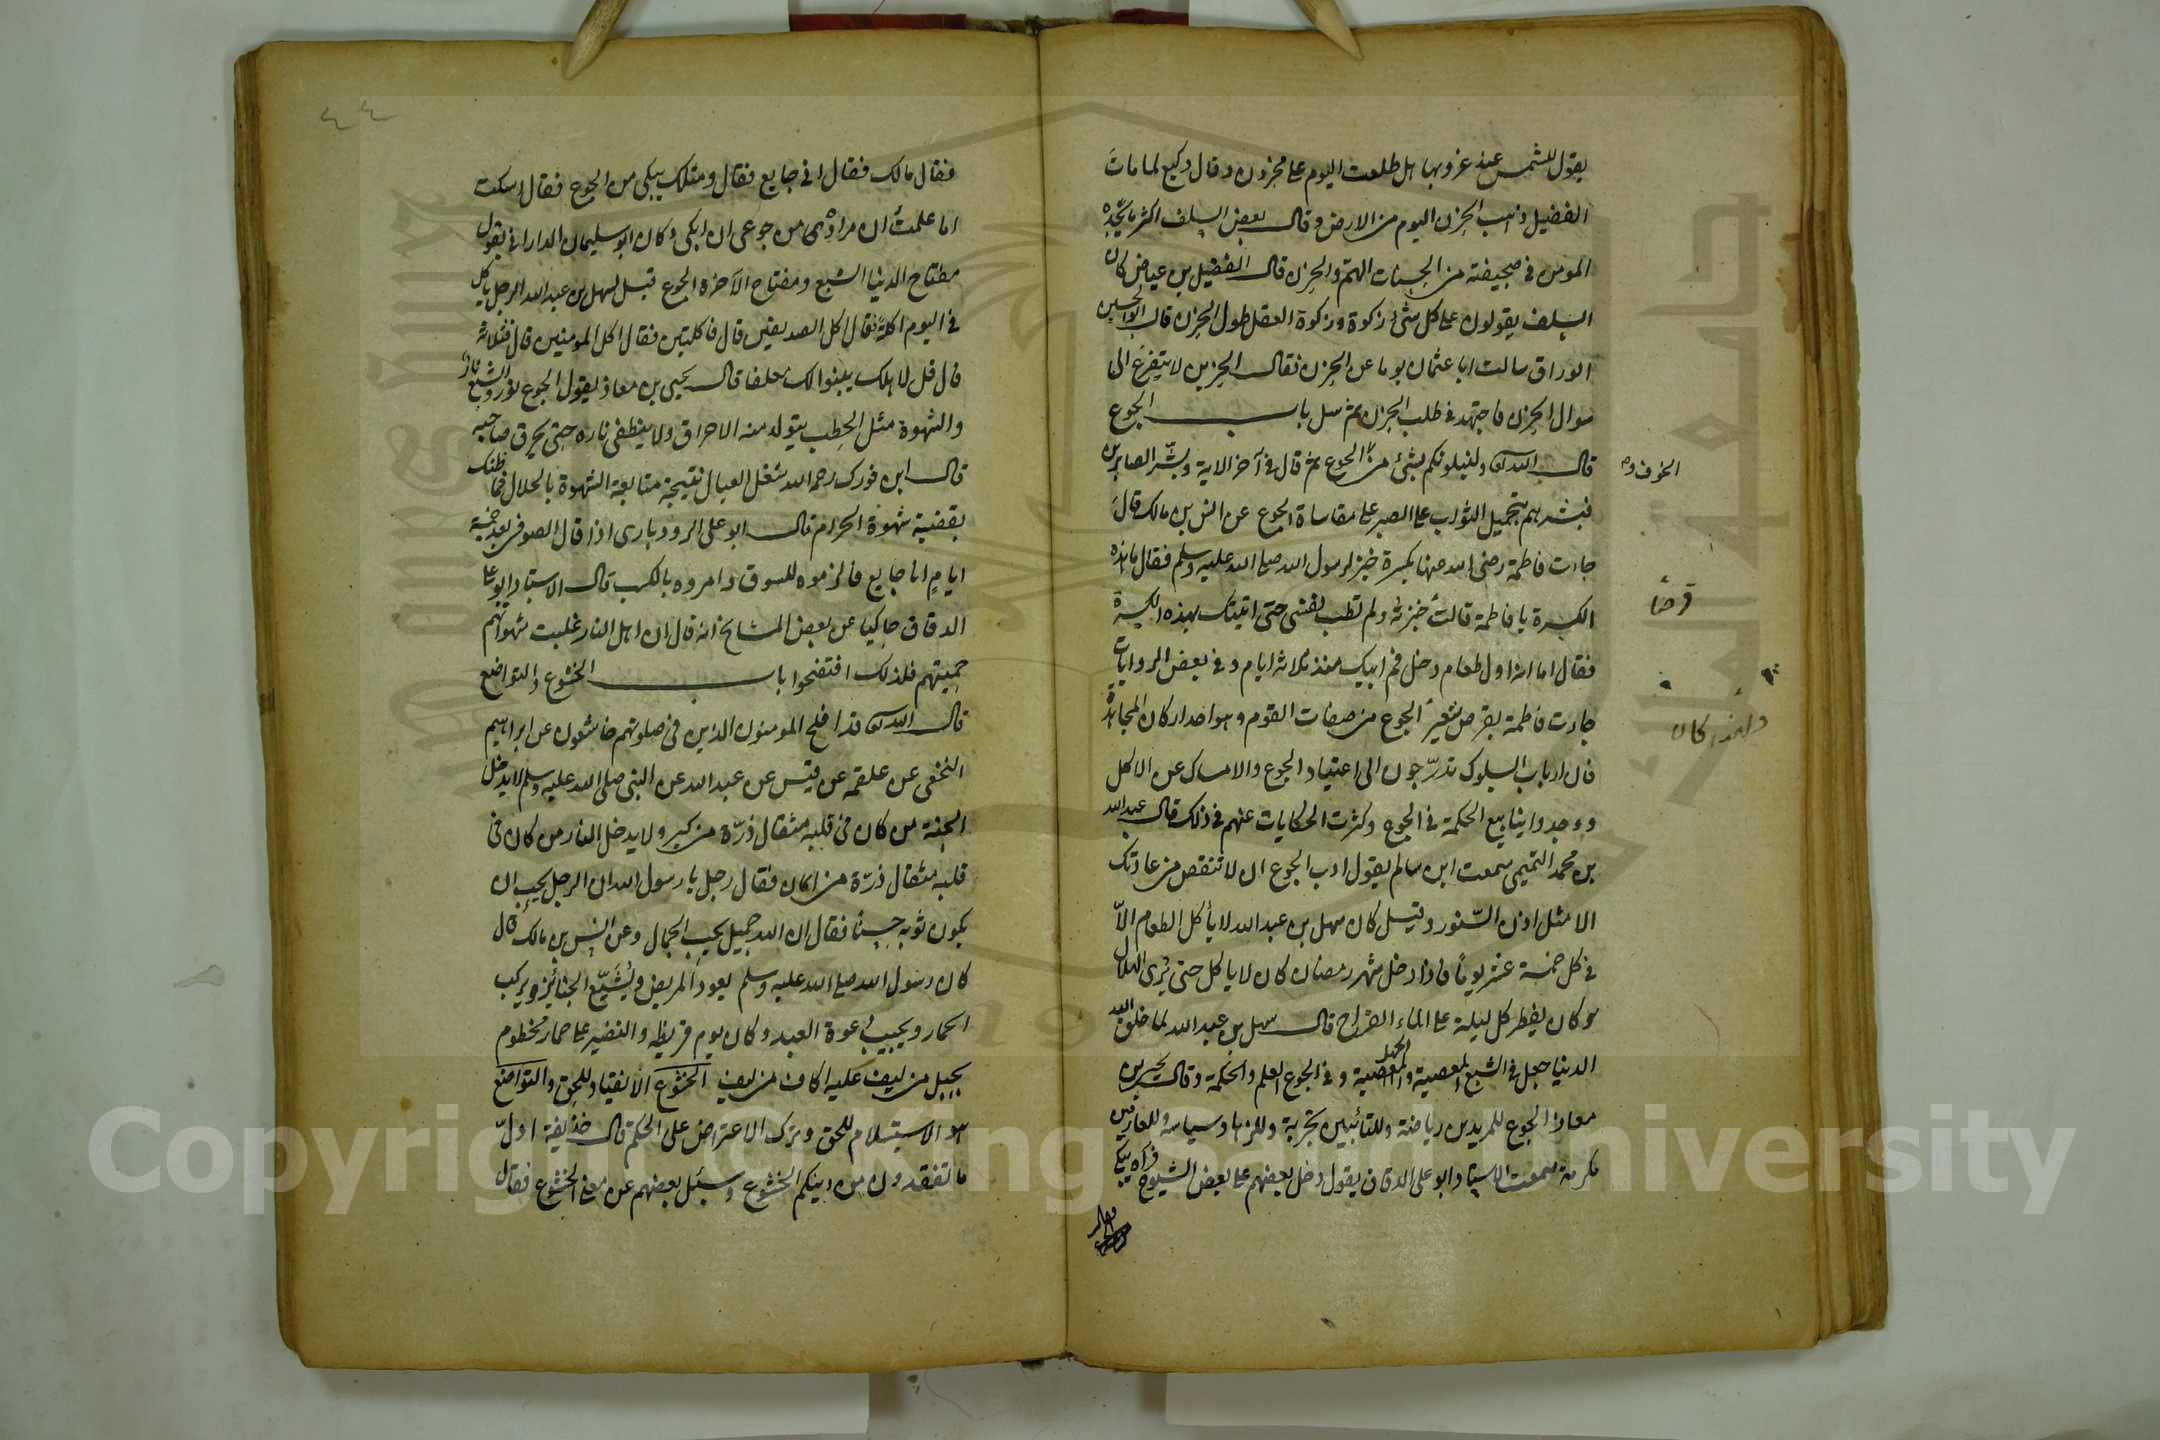 يقول للشمس عند غروبها هل طلعت اليوم على محزون وقال وكيع لما مات
الفضيل ذهب الحزن اليوم من الارض وقال بعض السلف اكثر ما يجده
المومن في صحيفته من الحسنات الهم والحزن قال الفضيل بن عياض كان
السلف يقولون على كل شئ زكوة وزكوة العقل طول الحزن قال ابو الحسين
الوراق سالت ابا عثمان يوما عن الحزن فقال الحزين لا يتفرغ الى
سوال الحزن فاجتهد في طلب الحزن ثم سل باب الجوع
قال الله تع ولنبلونكم بشئ من الجوع ثم قال في آخر الاية وبشّر الصابرين
الخوف و
فبشرهم بجميل الثواب على الصبر على مقاساة الجوع عن انس بن مالك قال
جاءت فاطمة رضى الله عنها بكسرة خبز لرسول الله صلى الله عليه وسلم فقال ما هذه
الكسرة يا فاطمة قالت خبزته ولم تطب نفسى حتى اتيتك بهذه الكسرة
قرصًا
فقال اما انه اول طعام دخل فم ابيك منذ ثلاثة ايام وفي بعض الروايات
جاءت فاطمة بقرص شعير الجوع من صفات القوم وهو احد اركان المجاهدة
ولهذا كان
فان ارباب السلوك تدرّجون الى اعتياد الجوع والامساك عن الاكل
ووجدوا ينابيع الحكمة في الجوع وكثرت الحكايات عنهم في ذلك قال عبد الله
بن محمد التميمي سمعت ابن سالم يقول ادب الجوع ان لا تنقص من عادتك
الا مثل اذن السّنور وقيل كان سهل بن عبد الله لا يأكل الطعام الاّ
في كل خمسة عشر يومًا فاذا دخل شهر رمضان كان لا ياكل حتى يُرى الهلال
وكان يفطر كل ليلة على الماء القراح قال سهل بن عبد الله لما خلق الله
الدنيا جعل في الشبع المعصية والجهل وفي الجوع العلم والحكمة وقال يحيى بن
معاذ الجوع للمريدين رياضة وللتائبين تجربة وللزهاد سياسه وللعارفين
مكرمة سمعت الاستاد ابو على الدقاق يقول دخل بعضهم على بعض الشيوخ فرآه يبكى
فقال
٤٤
فقال مالك فقال انى جايع فقال ومثلك يبكى من الجوع فقال اسكت
اما علمتَ ان مراده من جوعى ان ابكى وكان ابو سليمان الدارانى يقول
مفتاح الدنيا الشبع ومفتاح الآخرة الجوع قيل لسهل بن عبد الله الرجل ياكل
في اليوم اكلة فقال اكل الصديقين قال فاكلتين فقال اكل المومنين قال فثلاثة
قال قل لاهلك يبنوا لك معلفا قال يحيى بن معاذ يقول الجوع نور والشبع نار
والشهوة مثل الحطب يتولد منه الاحراق ولا ينطفى ناره حتى يحرق صاحبه
قال ابن فورك رحمه الله شغل العيال نتيجة متابعة الشهوة بالحلال فما ظنك
بقضية شهوة الحرام قال ابو على الرودبارى اذا قال الصوفى بعد خمسة
ايام انا جايع فالزموه للسوق وامروه بالكسب قال الاستاد ابو على
الدقاق حاكيا عن بعض المشايخ انه قال ان اهل النار غلبت شهواتهم
حميتهم فلذلك افتضحوا باب الخشوع والتواضع
قال الله تع قد افلح المومنون الذين في صلوتهم خاشعون عن ابراهيم
النخعى عن علقمه عن قيس عن عبد الله عن النبى صلى الله عليه وسلم لا يدخل
الجنة من كان في قلبه مثقال ذرّة من كبر ولا يدخل النار من كان في
قلبه مثقال ذرّة من ايمان فقال رجل يا رسول الله ان الرجل يحب ان
يكون ثوبه حسنًا فقال ان الله جميل يحب الجمال وعن انس بن مالك قال
كان رسول الله صلى الله عليه وسلم يعود المريض ويُشيّع الجنائز ويركب
الحمار ويجيب دعوة العبد وكان يوم قريظه والنضير على حمار مخطوم
بحبل من ليف عليه اكاف من ليف الخشوع الانقياد للحق والتواضع
هو الاستسلام للحق وترك الاعتراض على الحكم قال حذيفة اولّ
ما تفقدون من دينكم الخشوع وسئل بعضهم عن معنى الخشوع فقال
Copyright © King Saud University
جامعة الملك سعود